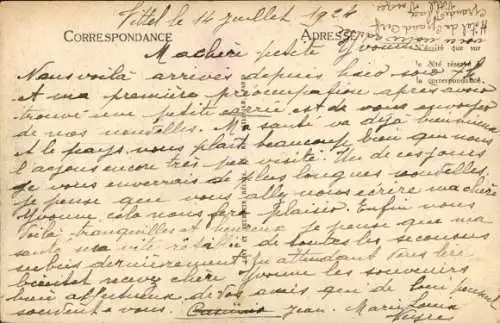 Vittel le 14 Juillet 1924
CORRESPONDANCE
ADRESSE
Ma chère petite Yvonne
Nous voilà arrivés depuis hier soir
Et ma première préoccupation après avoir
trouvé une petite est de vous envoyer
de nos nouvelles. Ma santé va déjà bien mieux
et le pays nous plait beaucoup bien que nous
l'ayons encore très peu visité. Un de ces jours
je vous enverrai de plus longues nouvelles
je pense que vous allez nous écrire ma chère
Yvonne cela nous fera plaisir. Enfin nous
voilà tranquilles et heureux je pense que ma
santé sera vite rétablie de toutes les secousses
subies dernièrement. En attendant vous lire
bientôt recevez chère Yvonne les souvenirs
bien affectueux de vos amis qui de loin pensent
souvent à vous. Jean. Marie Louise